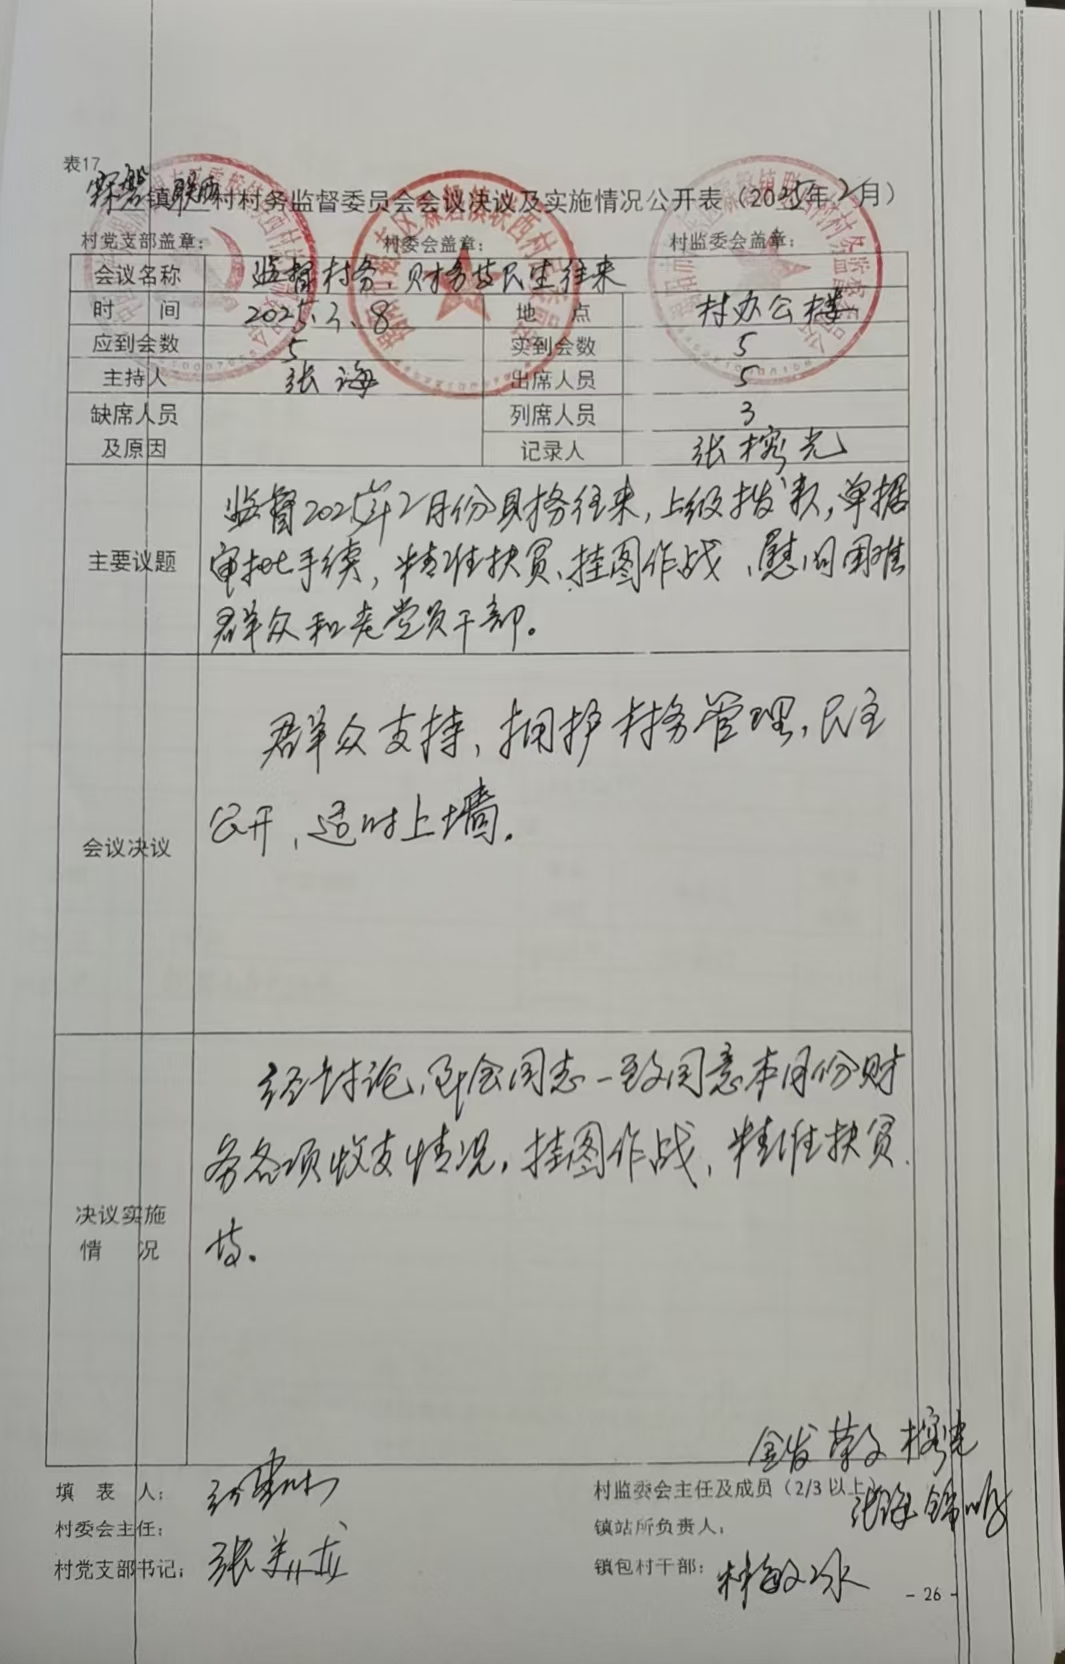 表17
霖磐镇联西村村务监督委员会会议决议及实施情况公开表（2025年2月）
村党支部盖章： 村委会盖章： 村监委会盖章：
会议名称 监督村务、财务及民生往来
时 间 2025.3.8 地 点 村办公楼
应到会数 5 实到会数 5
主持人 张海 出席人员 5
缺席人员 列席人员 3
及原因 记录人 张榕光
主要议题
监督2025年2月份财务往来,上级拨款,单据
审批手续,精准扶贫、挂图作战、慰问困难
群众和老党员干部。
会议决议
群众支持,拥护村务管理,民主
公开、适时上墙.
决议实施
情 况
经讨论,到会同志一致同意本月份财
务各项收支情况,挂图作战,精准扶贫
等.
金发 榕光
填 表 人：
村监委会主任及成员（2/3以上）
村委会主任：
镇站所负责人：
村党支部书记： 张美龙
镇包村干部： 林敏冰
- 26 -